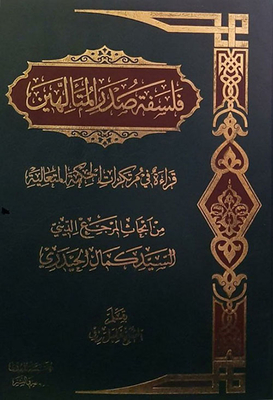 فلسفة صدر المتألهين
قراءة في مرتكزات الحكمة المتعالية
من أبحاث المرجع الديني
السيد كمال الحيدري
بقلم
الشيخ